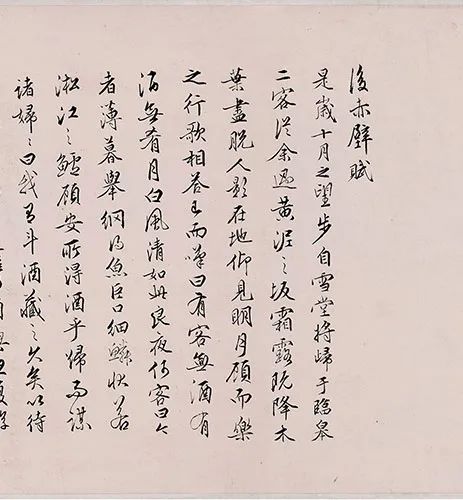 後赤壁賦
是歲十月之望步自雪堂將歸于臨皋
二客從余過黃泥之坂霜露既降木
葉盡脫人影在地仰見明月顧而樂
之行歌相答已而嘆曰有客無酒有
酒無肴月白風清如此良夜何客曰今
者薄暮舉網得魚巨口細鱗狀若
淞江之鱸顧安所得酒乎歸而謀
諸婦〻曰我有斗酒藏之久矣以待